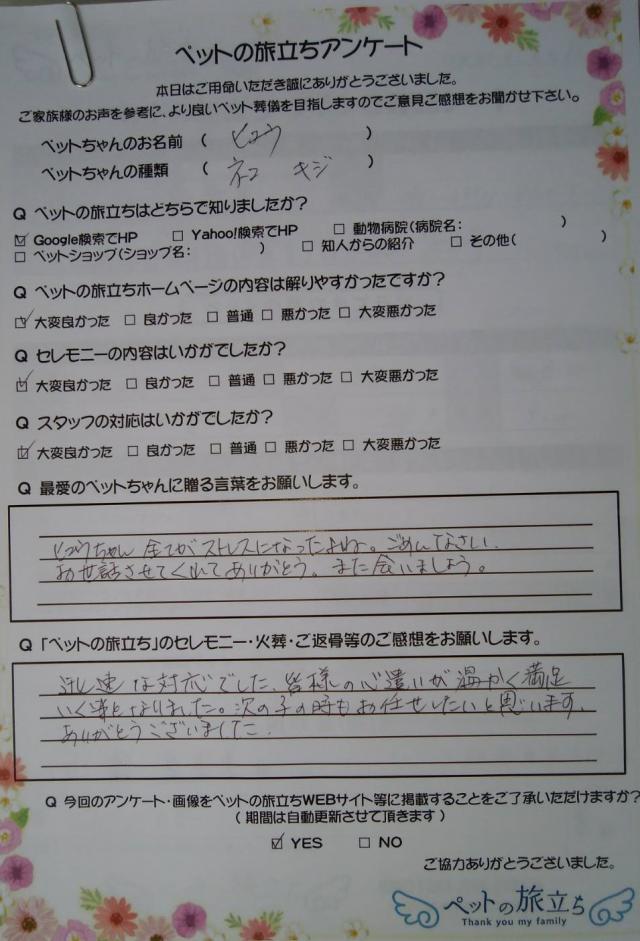 ペットの旅立ちアンケート
本日はご用命いただき誠にありがとうございました。
ご家族様のお声を参考に、より良いペット葬儀を目指しますのでご意見ご感想をお聞かせ下さい。
ペットちゃんのお名前 ( ヒョウ )
ペットちゃんの種類 ( ネコ キジ )
Q ペットの旅立ちはどちらで知りましたか?
☑ Google検索でHP □ Yahoo!検索でHP □ 動物病院(病院名: )
□ ペットショップ(ショップ名: ) □ 知人からの紹介 □ その他( )
Q ペットの旅立ちホームページの内容は解りやすかったですか?
☑ 大変良かった □ 良かった □ 普通 □ 悪かった □ 大変悪かった
Q セレモニーの内容はいかがでしたか?
☑ 大変良かった □ 良かった □ 普通 □ 悪かった □ 大変悪かった
Q スタッフの対応はいかがでしたか?
☑ 大変良かった □ 良かった □ 普通 □ 悪かった □ 大変悪かった
Q 最愛のペットちゃんに贈る言葉をお願いします。
ヒョウちゃん 全てがストレスになったよね。ごめんなさい。
お世話させてくれてありがとう。また会いましょう。
Q 「ペットの旅立ち」のセレモニー・火葬・ご返骨等のご感想をお願いします。
迅速な対応でした。皆様の心遣いが温かく満足
いく となりました。次の子の時もお任せしたいと思います。
ありがとうございました。
Q 今回のアンケート・画像をペットの旅立ちWEBサイト等に掲載することをご了承いただけますか?
( 期間は自動更新させて頂きます )
☑ YES □ NO
ご協力ありがとうございました。
ペットの旅立ち
Thank you my family